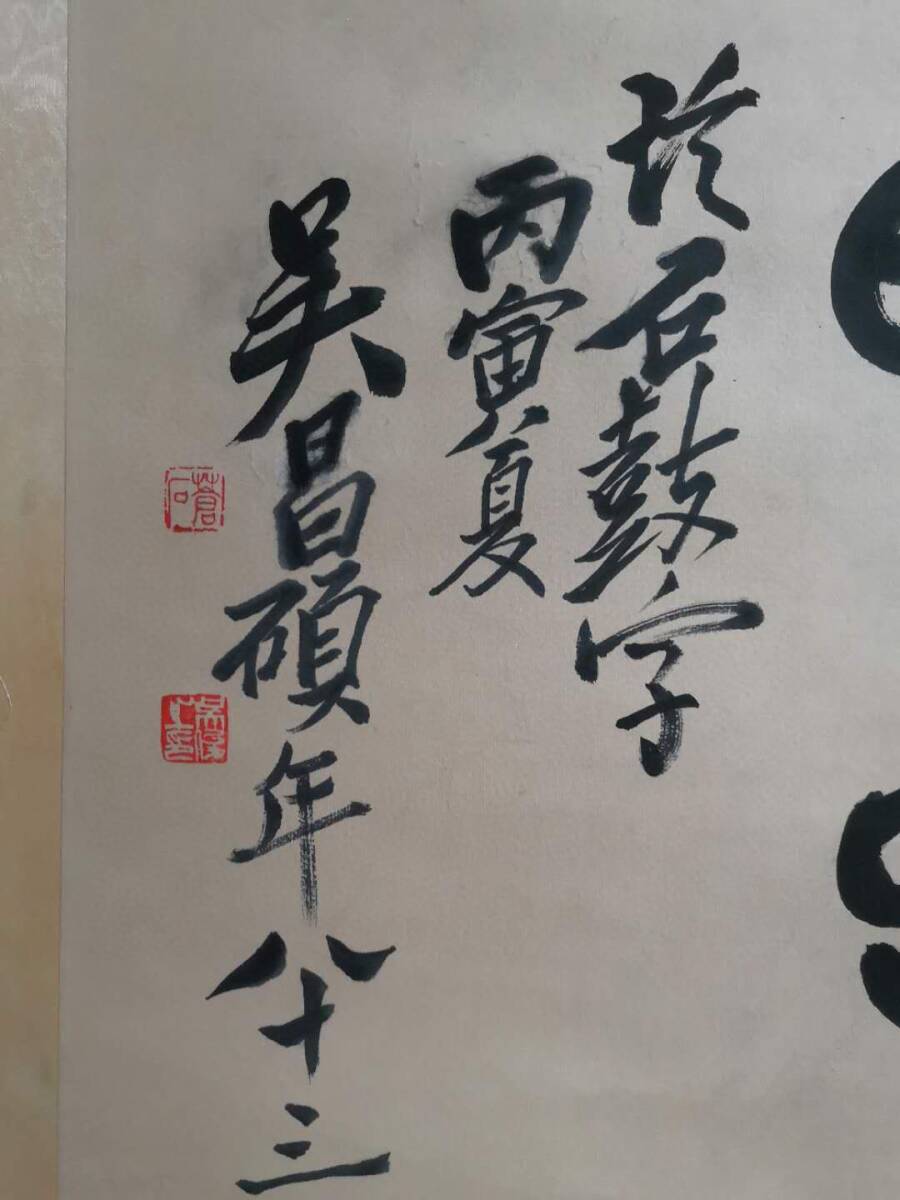 石鼓字
丙寅夏
吴昌碩年八十三